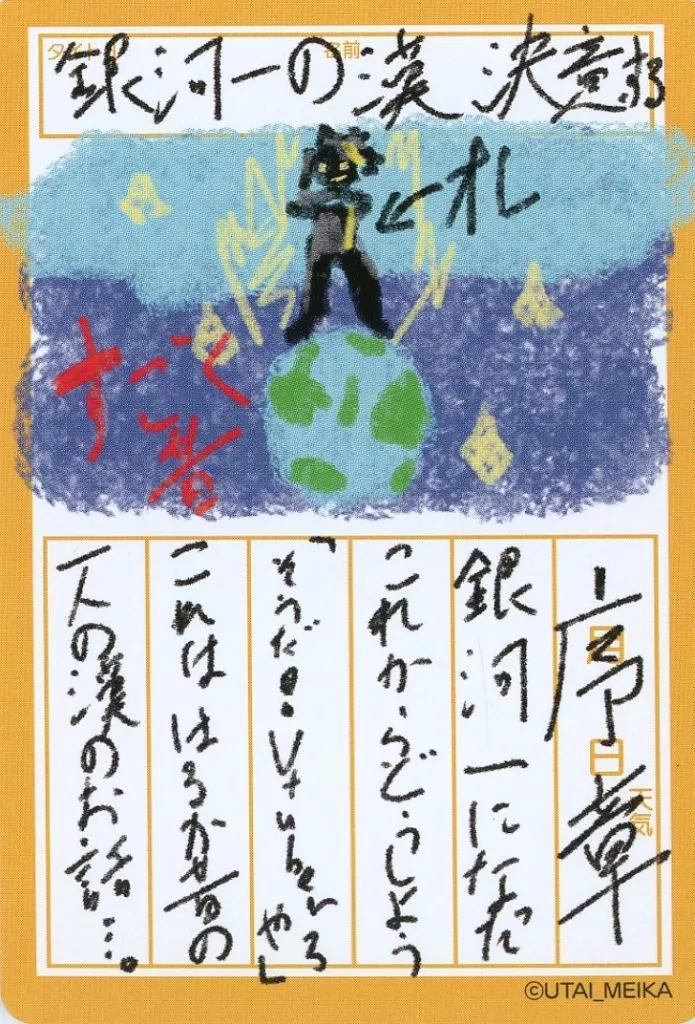 タイトル
名前
銀河一の漢 決意する
オレ
月
日
天気
序章
銀河一になった
これからどうしよう
「そうだ！Vtuberやろ」
これははるか昔の
一人の漢のお話…。
©UTAI_MEIKA